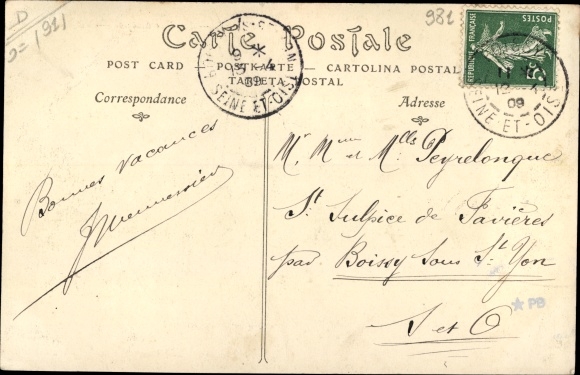 Carte Postale
POST CARD — POSTKARTE — CARTOLINA POSTAL
TARJETA POSTAL
Correspondance
Adresse
981
D
1921
POSTES
REPUBLIQUE FRANÇAISE
SEINE-ET-OISE
09
SEINE-ET-OISE
09
Bonnes vacances
Mr, Mme et Mlles Peyrelongue
St Sulpice de Favières
par Boissy sous St Yon
S et O
PB